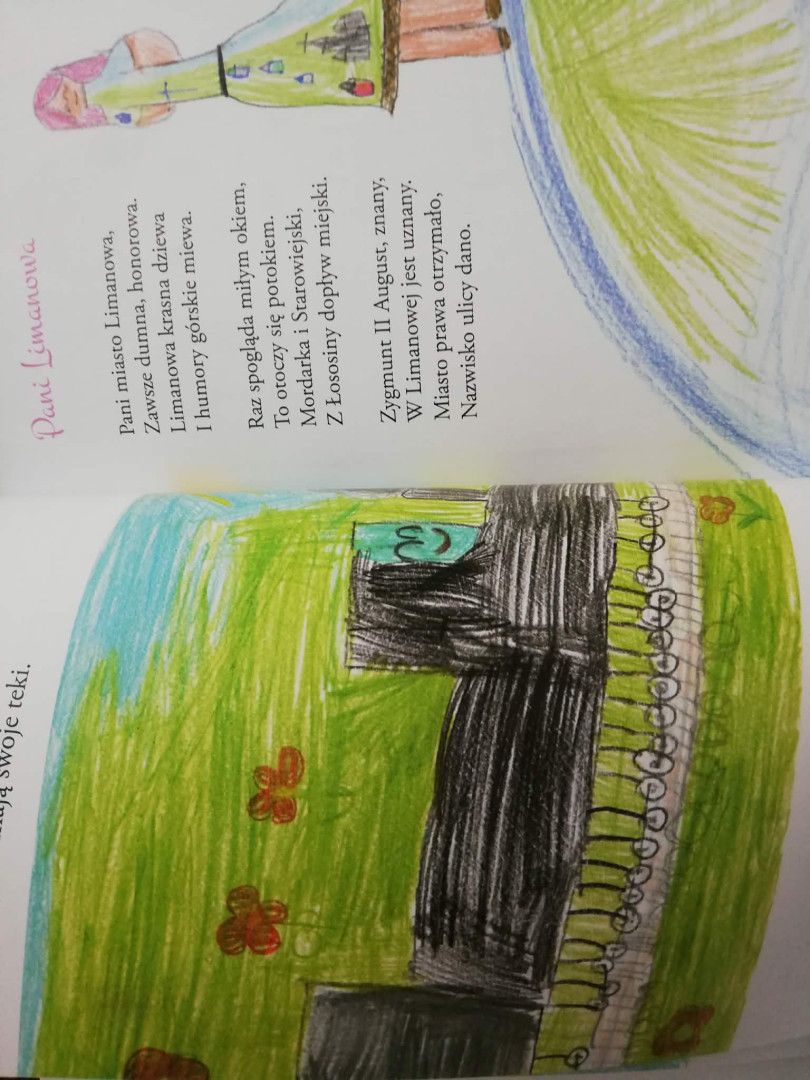 swoje teki.
Pani Limanowa
Pani miasto Limanowa,
Zawsze dumna, honorowa.
Limanowa krasna dziewa
I humory górskie miewa.
Raz spogląda miłym okiem,
To otoczy się potokiem.
Mordarka i Starowiejski,
Z Łososiny dopływ miejski.
Zygmunt II August, znany,
W Limanowej jest uznany.
Miasto prawa otrzymało,
Nazwisko ulicy dano.